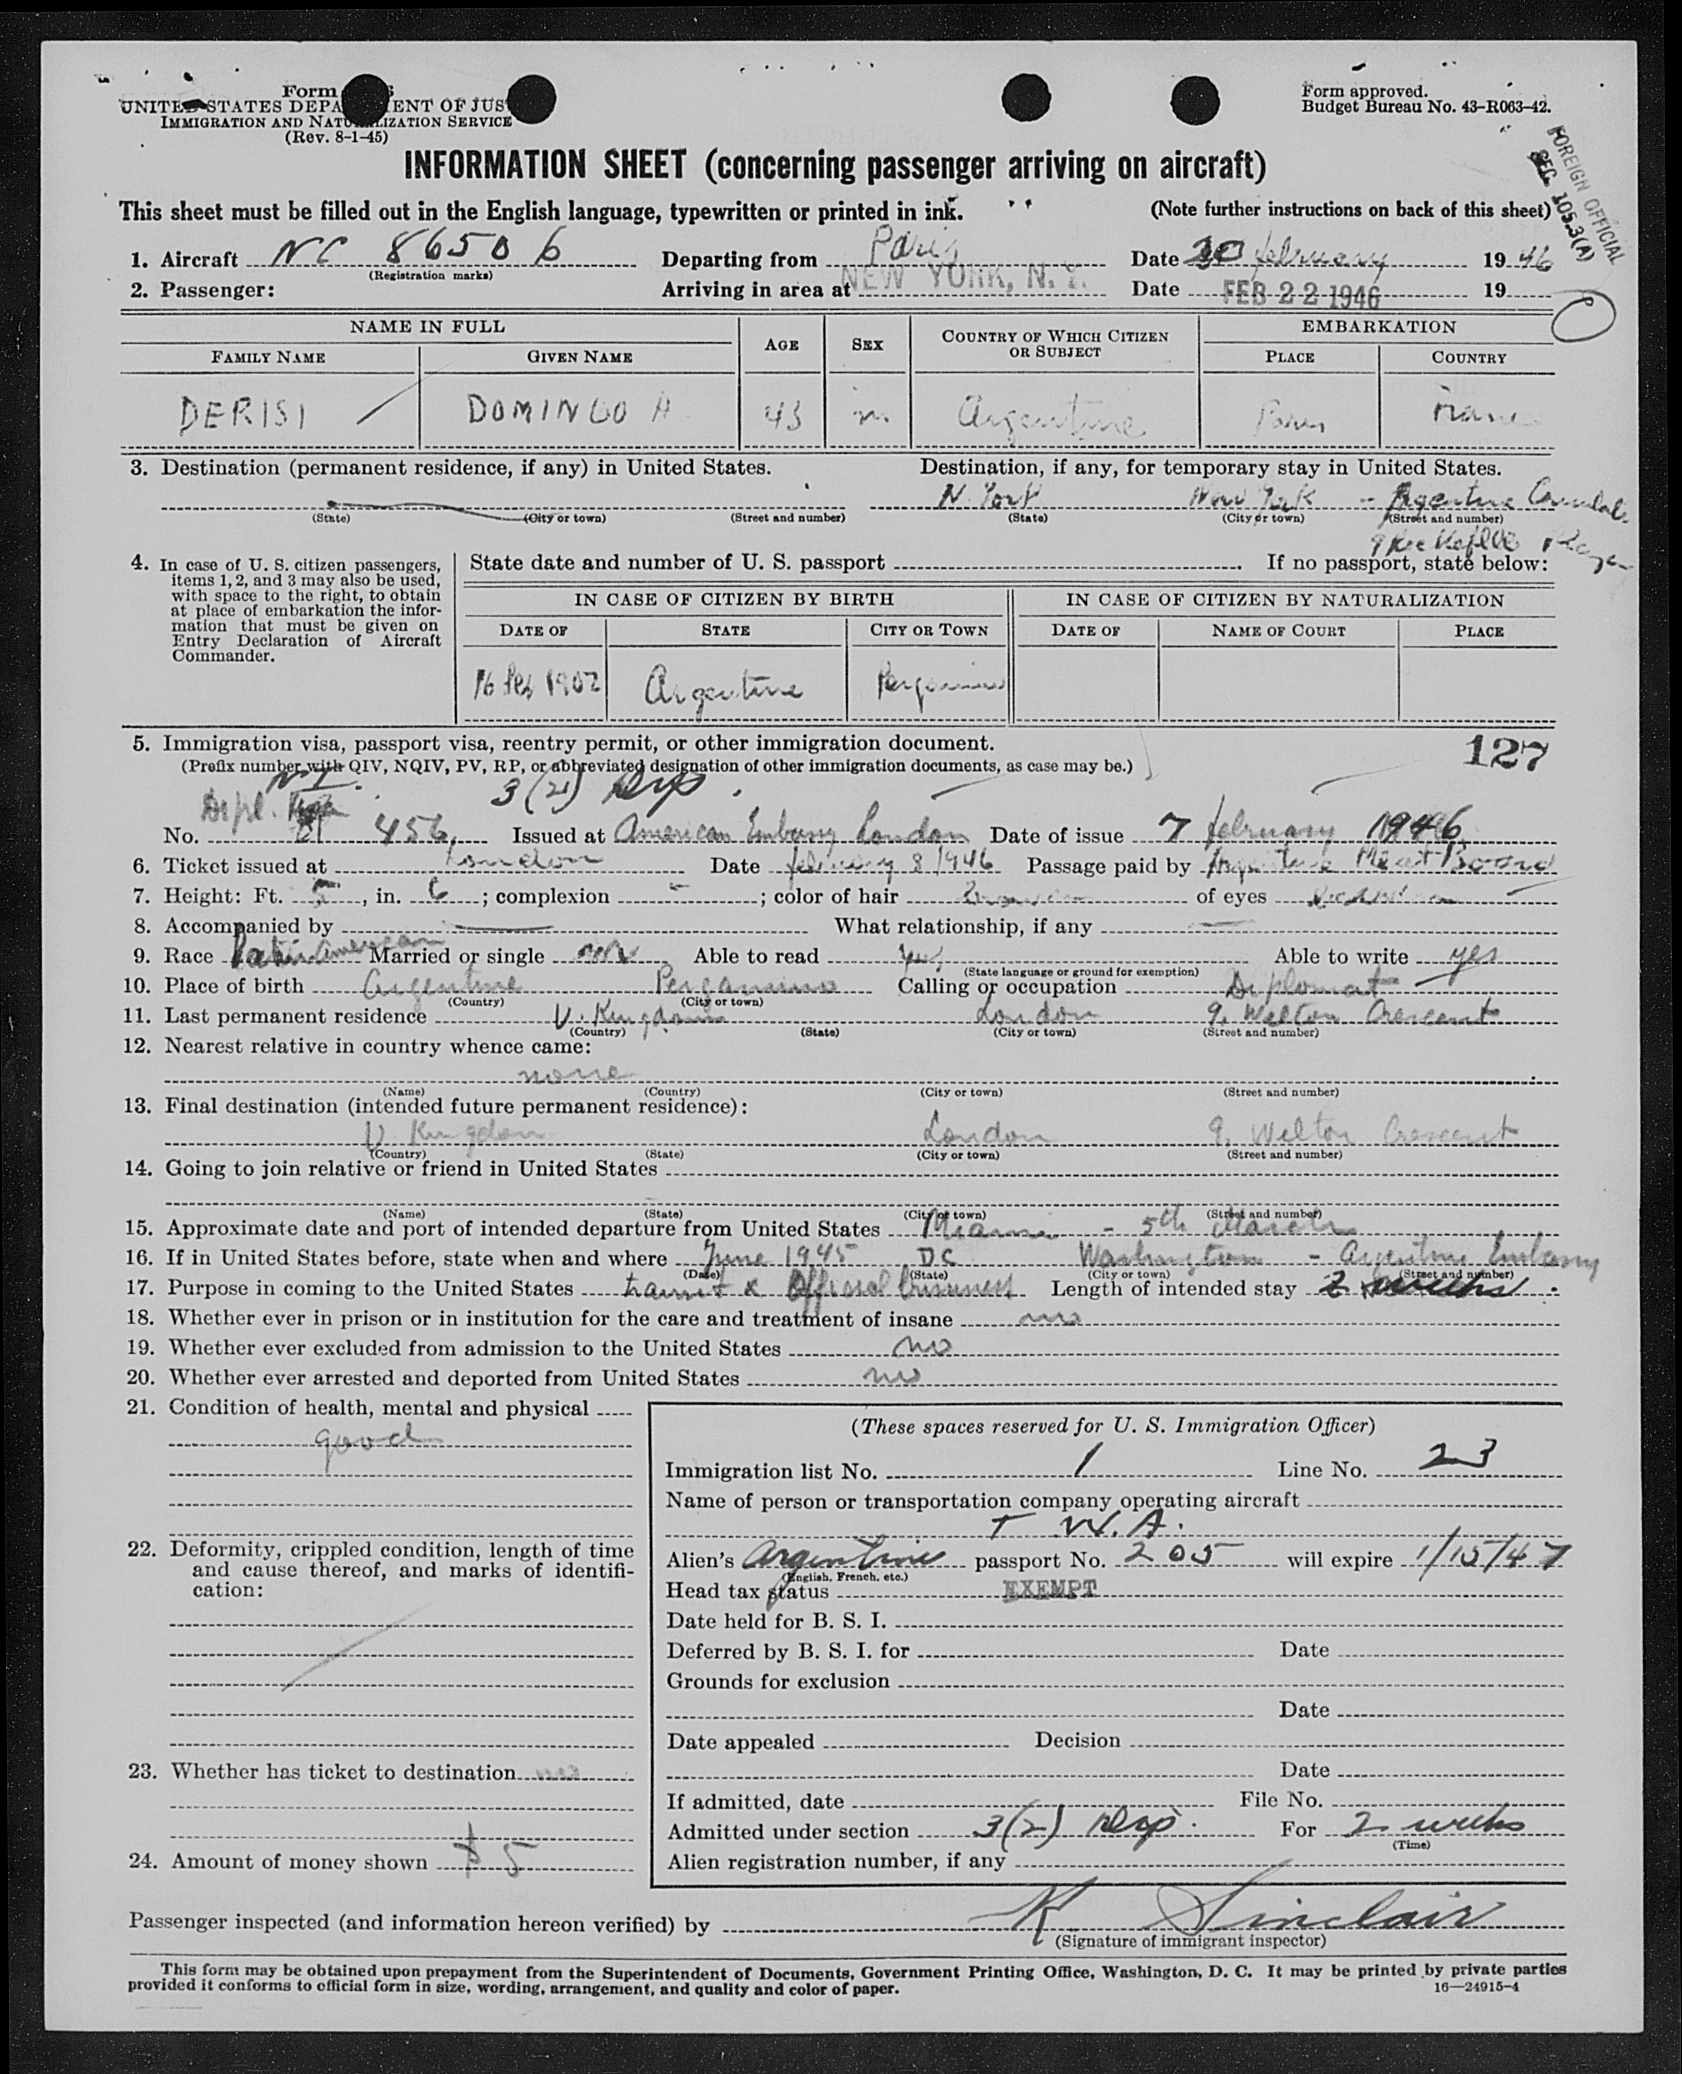 Form
UNITED STATES DEPARTMENT OF JUSTICE
IMMIGRATION AND NATURALIZATION SERVICE
(Rev. 8-1-45)
Form approved.
Budget Bureau No. 43-R063-42.
FOREIGN OFFICIAL
SEC. 105.3(A)
INFORMATION SHEET (concerning passenger arriving on aircraft)
This sheet must be filled out in the English language, typewritten or printed in ink. (Note further instructions on back of this sheet)
1. Aircraft NC 86506 Departing from Paris Date 20 february 1946
(Registration marks)
2. Passenger: Arriving in area at NEW YORK, N.Y. Date FEB 22 1946 19
NAME IN FULL AGE SEX COUNTRY OF WHICH CITIZEN OR SUBJECT EMBARKATION
FAMILY NAME GIVEN NAME PLACE COUNTRY
DERISI DOMINGO A 43 m. Argentine Paris France
3. Destination (permanent residence, if any) in United States. Destination, if any, for temporary stay in United States.
N. York New York - Argentine Consulate
(State) (City or town) (Street and number) (State) (City or town) (Street and number)
4. In case of U. S. citizen passengers, items 1, 2, and 3 may also be used, with space to the right, to obtain at place of embarkation the information that must be given on Entry Declaration of Aircraft Commander.
State date and number of U. S. passport If no passport, state below:
IN CASE OF CITIZEN BY BIRTH IN CASE OF CITIZEN BY NATURALIZATION
DATE OF STATE CITY OR TOWN DATE OF NAME OF COURT PLACE
16 Feb 1902 Argentine Pergamino
5. Immigration visa, passport visa, reentry permit, or other immigration document. 127
(Prefix number with QIV, NQIV, PV, RP, or abbreviated designation of other immigration documents, as case may be.)
3(2) resp.
Dipl.
No. 456, Issued at American Embassy London Date of issue 7 february 1946
6. Ticket issued at London Date february 8 1946 Passage paid by Argentine Meat Board
7. Height: Ft. 5, in. 6; complexion -; color of hair Brown of eyes Brown
8. Accompanied by What relationship, if any
9. Race Latin American Married or single m Able to read yes Able to write yes
(State language or ground for exemption)
10. Place of birth Argentine Pergamino Calling or occupation Diplomat
(Country) (City or town)
11. Last permanent residence U. Kingdom London 9, Wilton Crescent
(Country) (State) (City or town) (Street and number)
12. Nearest relative in country whence came:
none
(Name) (Country) (City or town) (Street and number)
13. Final destination (intended future permanent residence):
U. Kingdom London 9, Wilton Crescent
(Country) (State) (City or town) (Street and number)
14. Going to join relative or friend in United States
(Name) (State) (City or town) (Street and number)
15. Approximate date and port of intended departure from United States Miami - 5th March
16. If in United States before, state when and where June 1945 DC Washington - Argentine Embassy
(Date) (State) (City or town) (Street and number)
17. Purpose in coming to the United States transit & Official business Length of intended stay 2 weeks.
18. Whether ever in prison or in institution for the care and treatment of insane no
19. Whether ever excluded from admission to the United States no
20. Whether ever arrested and deported from United States no
21. Condition of health, mental and physical
good
22. Deformity, crippled condition, length of time and cause thereof, and marks of identification:
23. Whether has ticket to destination
24. Amount of money shown $5
(These spaces reserved for U. S. Immigration Officer)
Immigration list No. 1 Line No. 23
Name of person or transportation company operating aircraft
T W. A.
Alien's Argentine passport No. 205 will expire 1/15/47
(English, French, etc.)
Head tax status EXEMPT
Date held for B. S. I.
Deferred by B. S. I. for Date
Grounds for exclusion
Date
Date appealed Decision
Date
If admitted, date File No.
Admitted under section 3(2) resp. For 2 weeks
(Time)
Alien registration number, if any
Passenger inspected (and information hereon verified) by K Sinclair
(Signature of immigrant inspector)
This form may be obtained upon prepayment from the Superintendent of Documents, Government Printing Office, Washington, D. C. It may be printed by private parties
provided it conforms to official form in size, wording, arrangement, and quality and color of paper. 16—24915-4